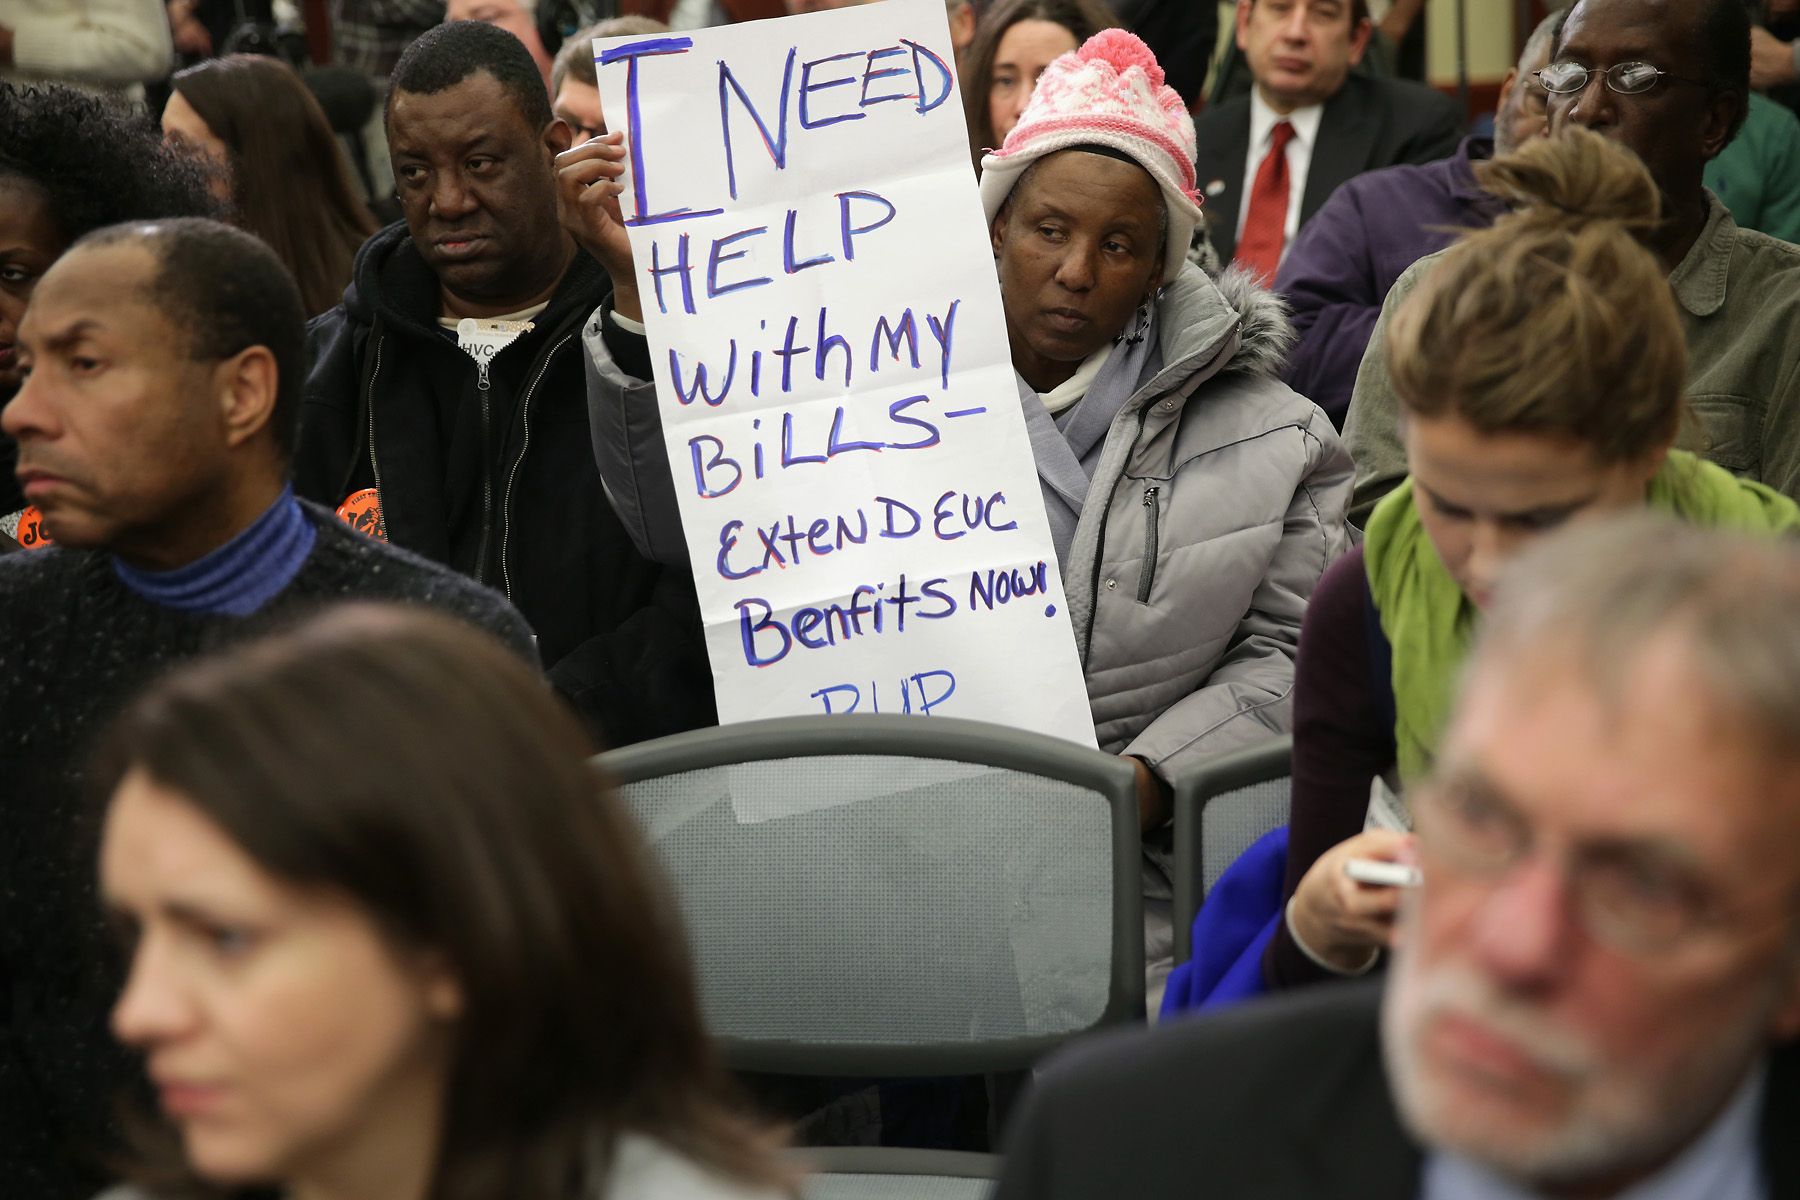 I NEED
HELP
With MY
BiLLS-
ExtenD EUC
Benfits NOW!
HVC